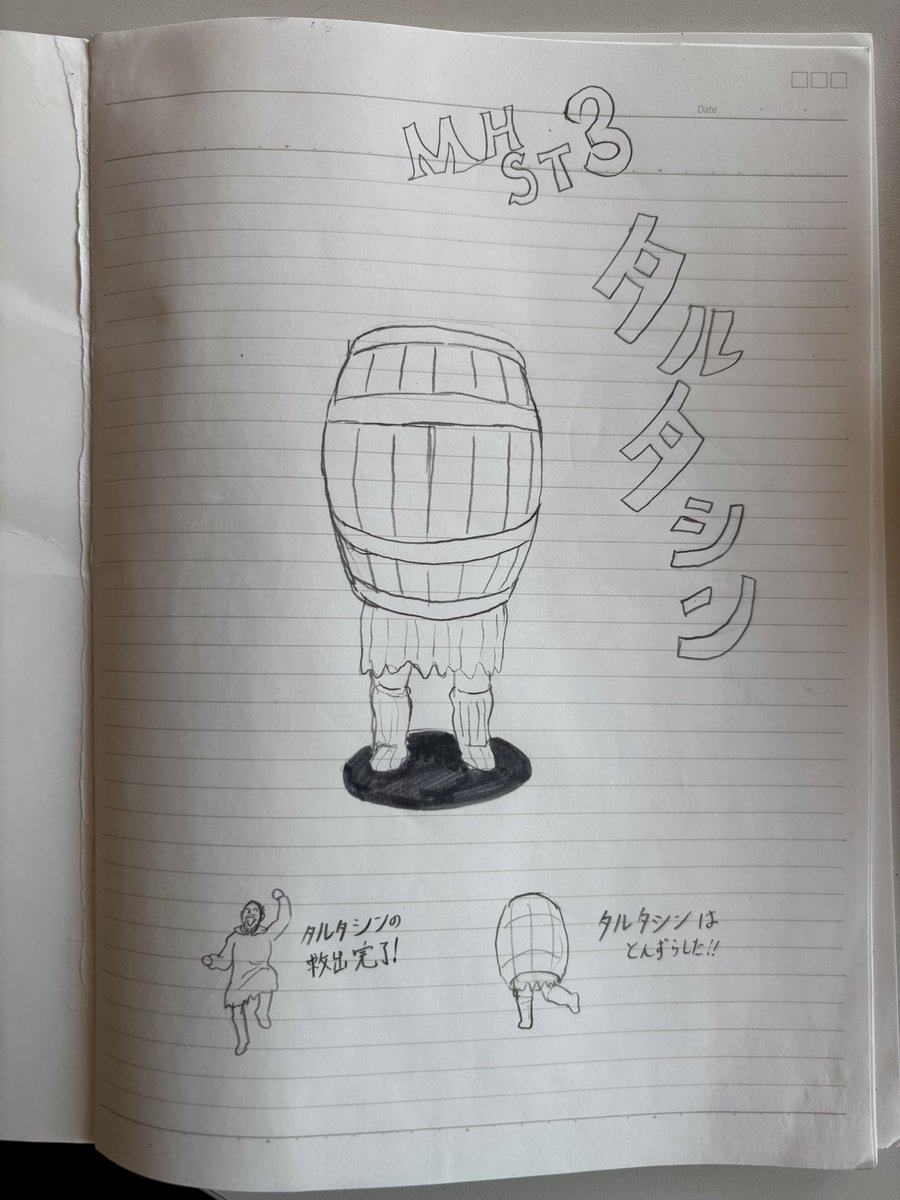 Date
MHST3
タルタシン
タルタシンの
救出完了!
タルタシンは
とんずらした!!